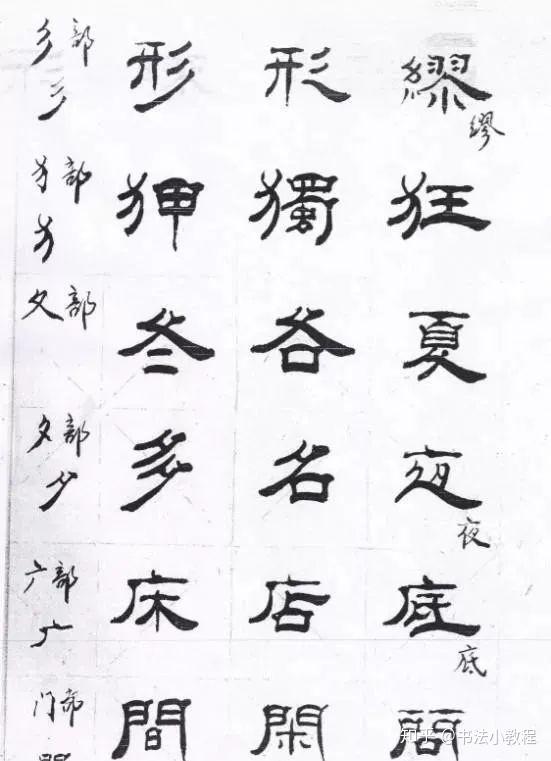 彡部 形 形 繆 缪
彡
犭部 狎 獨 狂
犭
夂部 冬 各 夏
夕部 多 名 夜 夜
夕
广部 床 店 底 底
广
门部 間 閑 問
知乎 @书法小教程